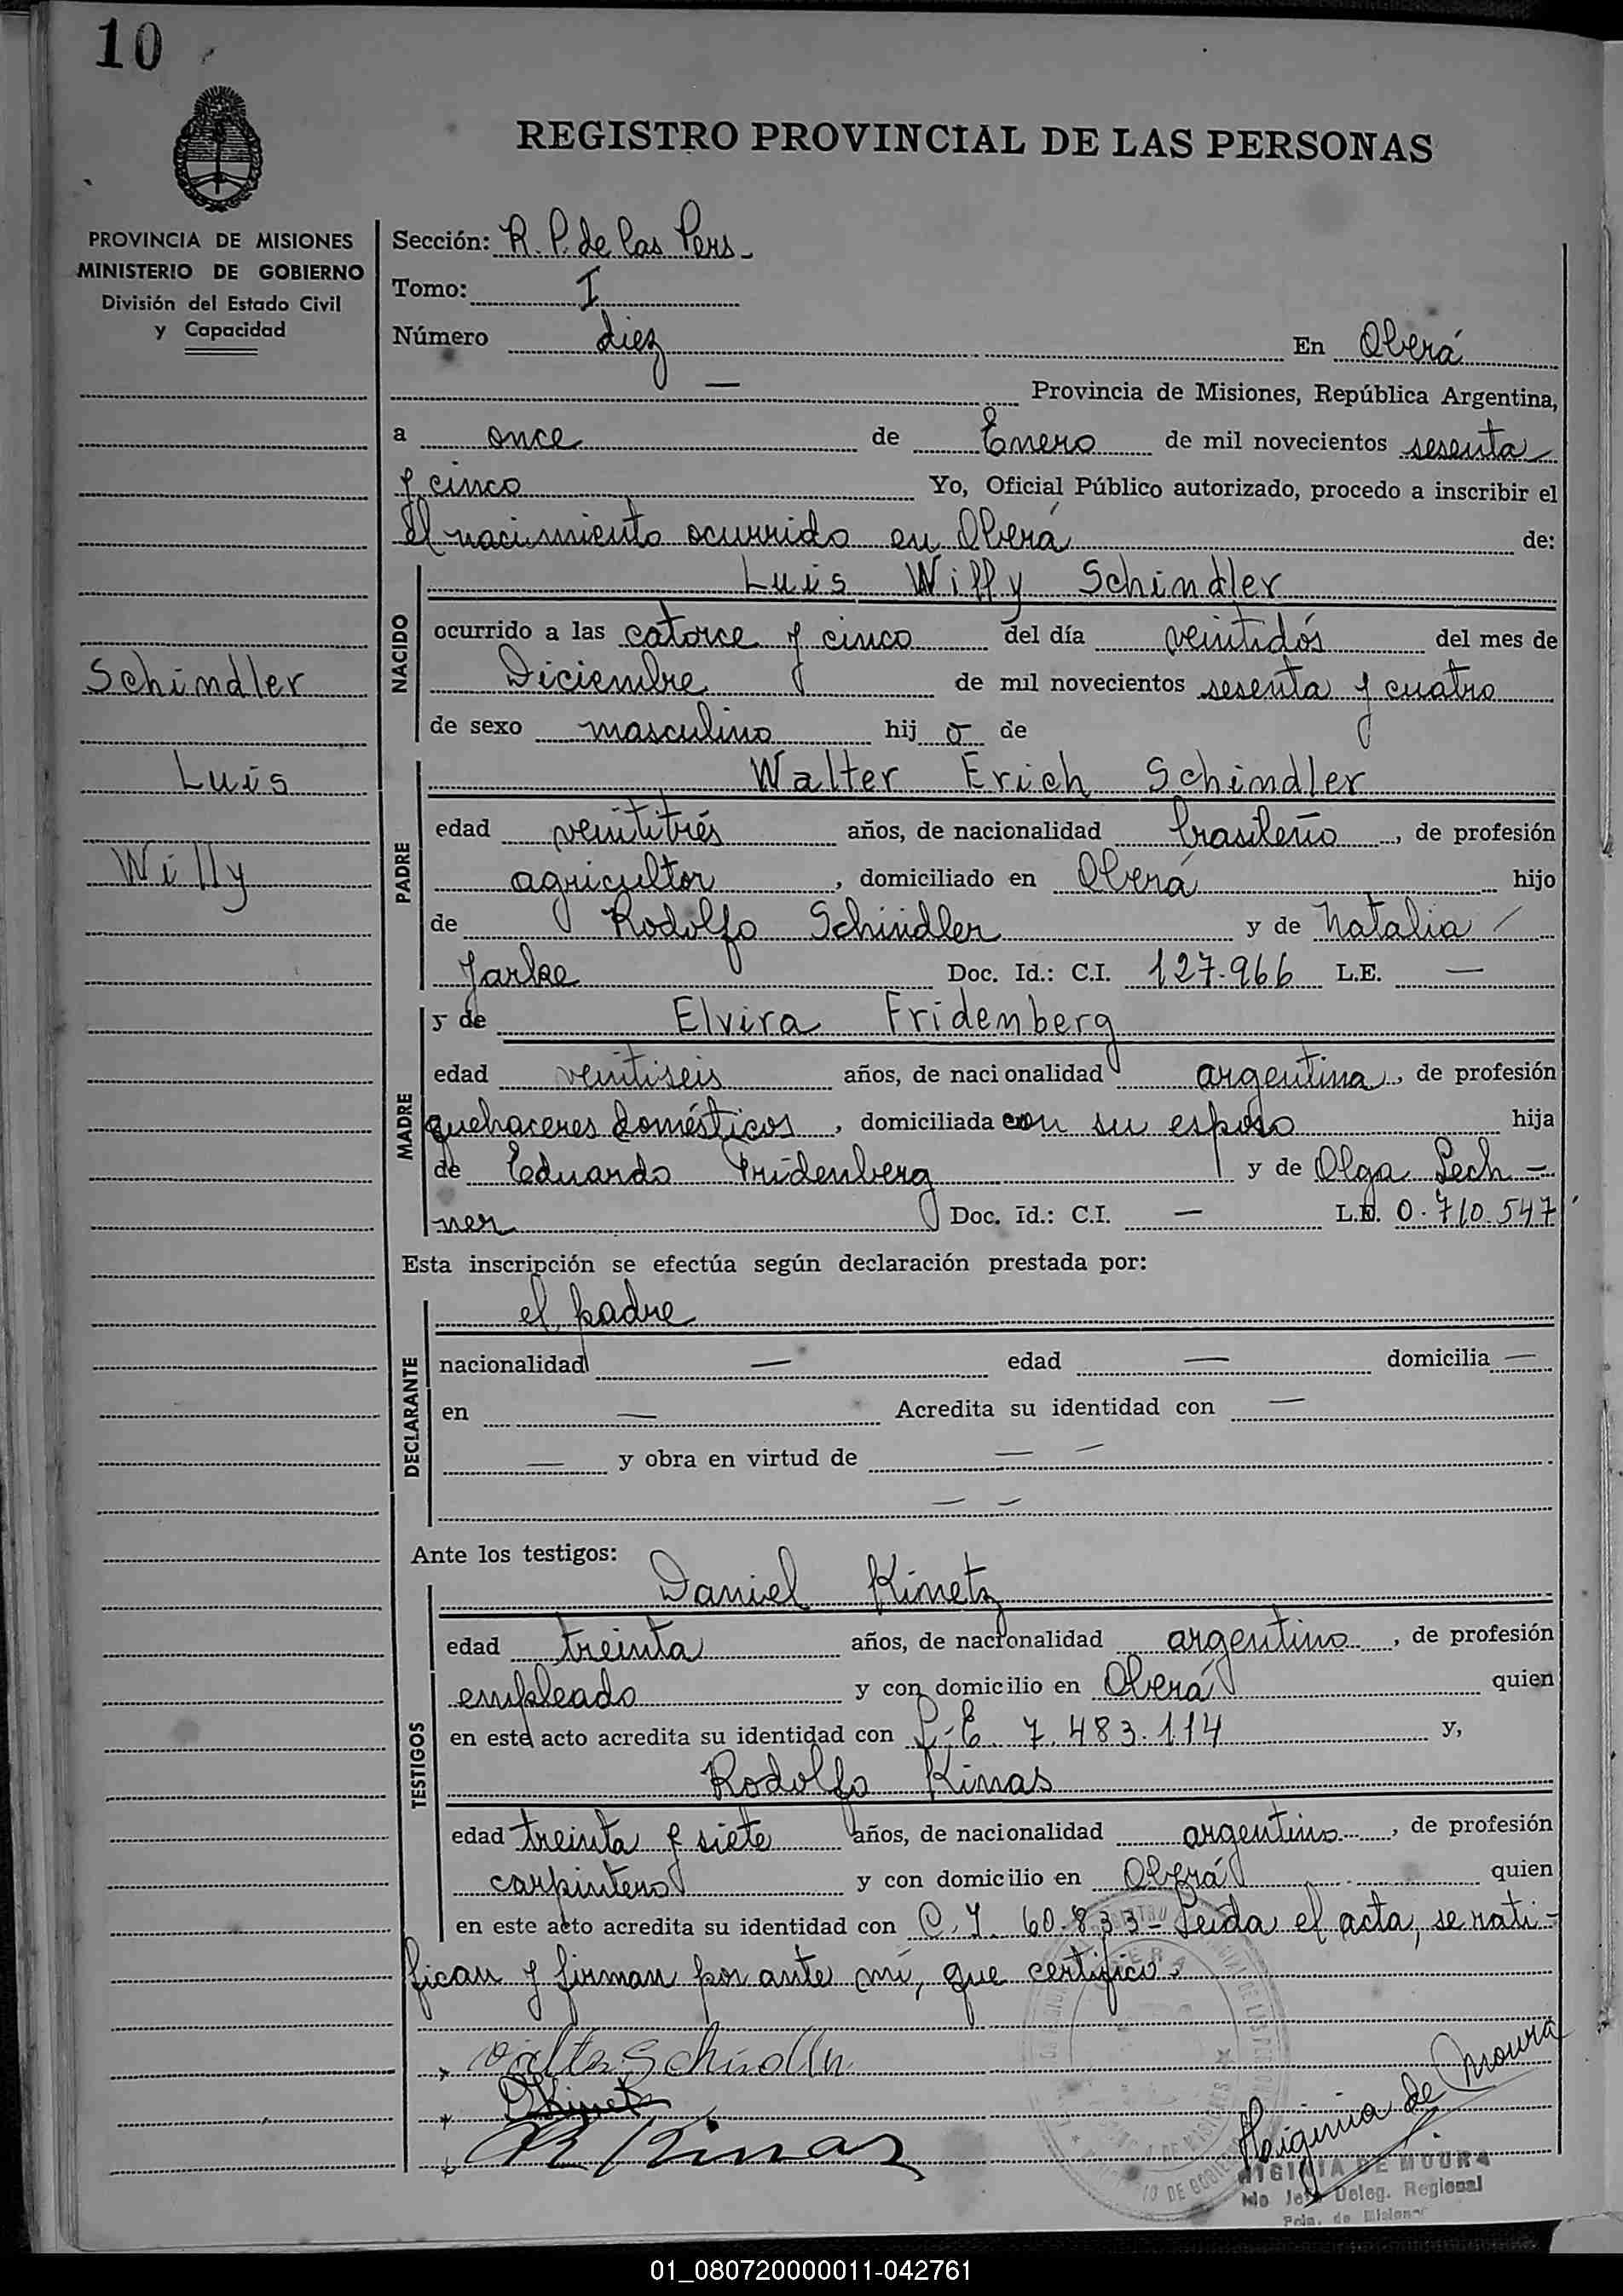 10
REGISTRO PROVINCIAL DE LAS PERSONAS
PROVINCIA DE MISIONES
MINISTERIO DE GOBIERNO
División del Estado Civil
y Capacidad
Schindler
Luis
Willy
Sección: R. P. de las Pers.
Tomo: I
Número diez En Oberá
— Provincia de Misiones, República Argentina,
a once de Enero de mil novecientos sesenta
y cinco Yo, Oficial Público autorizado, procedo a inscribir el
El nacimiento ocurrido en Oberá de:
NACIDO
Luis Willy Schindler
ocurrido a las catorce y cinco del día veintidós del mes de
Diciembre de mil novecientos sesenta y cuatro
de sexo masculino hij o de
PADRE
Walter Erich Schindler
edad veintitrés años, de nacionalidad brasileño, de profesión
agricultor, domiciliado en Oberá hijo
de Rodolfo Schindler y de Natalia
Jarke Doc. Id.: C.I. 127.966 L.E. —
MADRE
y de Elvira Fridemberg
edad veintiseis años, de nacionalidad argentina, de profesión
quehaceres domésticos, domiciliada con su esposo hija
de Eduardo Fridenberg y de Olga Lech-
ner Doc. Id.: C.I. — L.E. 0.710.547
Esta inscripción se efectúa según declaración prestada por:
DECLARANTE
el padre
nacionalidad — edad — domicilia —
en — Acredita su identidad con —
— y obra en virtud de — —
— —
Ante los testigos:
TESTIGOS
Daniel Kimetz
edad treinta años, de nacionalidad argentino, de profesión
empleado y con domicilio en Oberá quien
en este acto acredita su identidad con L. E. 7.483.114 y,
Rodolfo Kinas
edad treinta y siete años, de nacionalidad argentino, de profesión
carpintero y con domicilio en Oberá quien
en este acto acredita su identidad con C. I. 60.833- Leída el acta, se rati-
fican y firman por ante mí, que certifico.
Walter Schindler
R Kinas
Higinia de Moura
HIGINIA DE MOURA
Jefe Deleg. Regional
Pcia. de Misiones
01_080720000011-042761